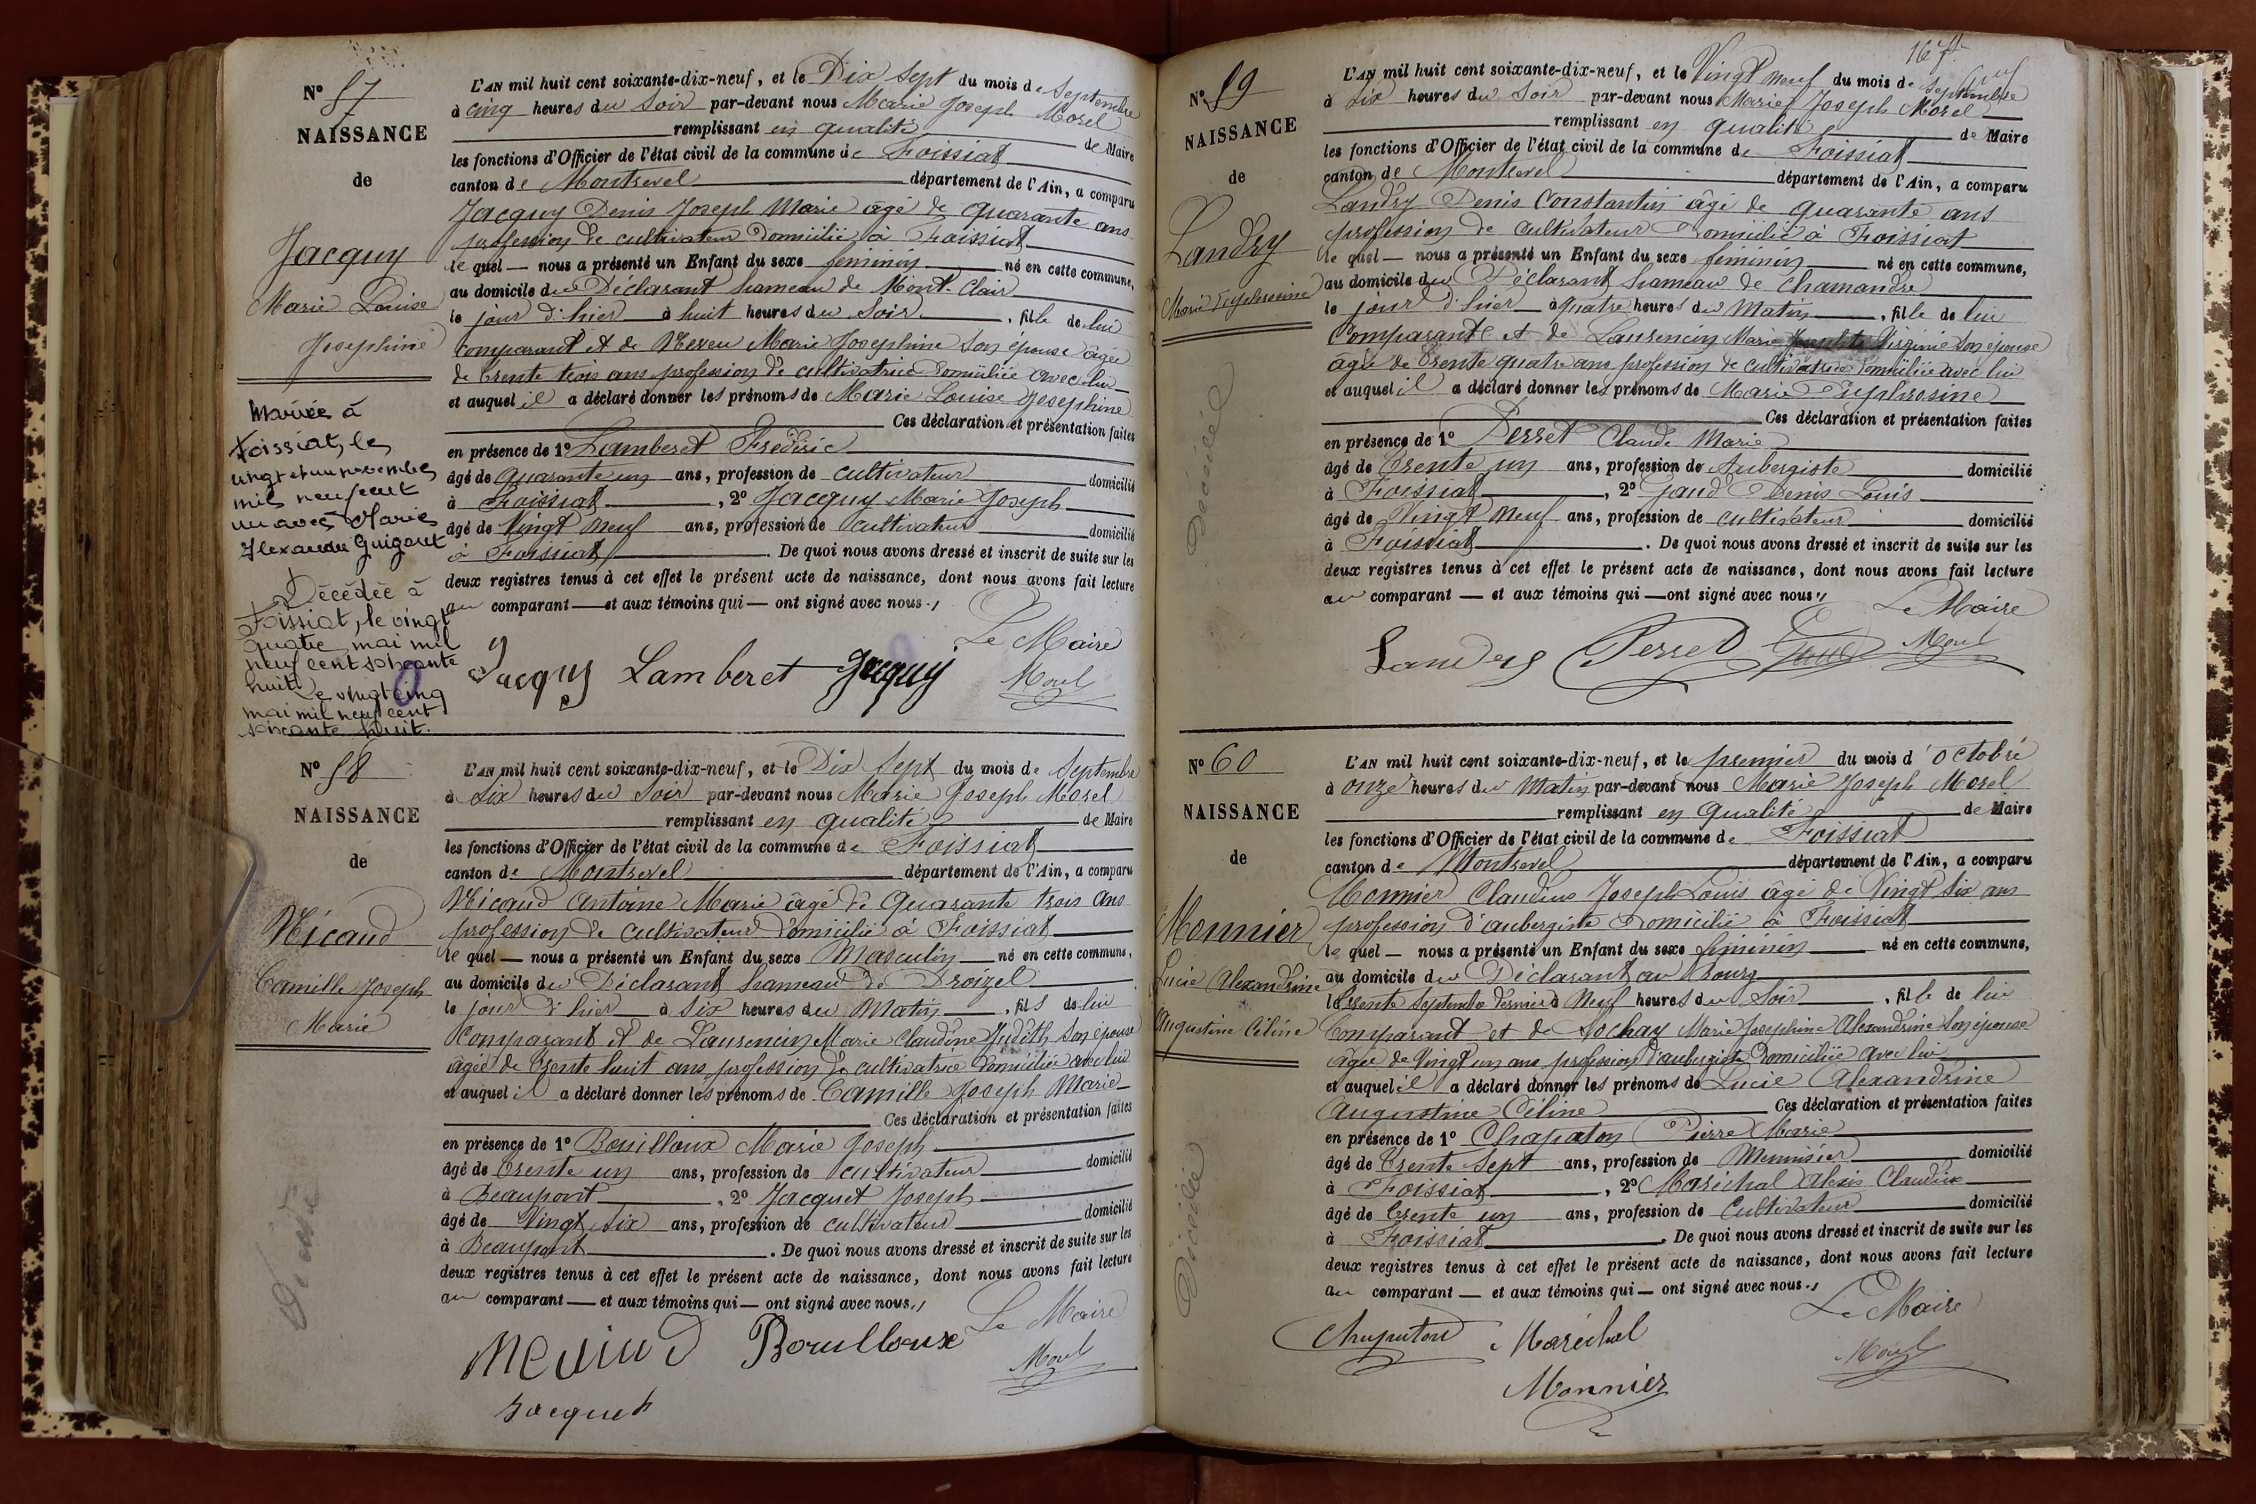 N° 57
NAISSANCE
de
Jacquy
Marie Louise
Josephine
Mariée à
Foissiat, le
vingt et un novembre
mil neuf cent
un avec Marie
Alexandre Guigout
Décédée à
Foissiat, le vingt
quatre mai mil
neuf cent soixante
huit
Le vingt cinq
mai mil neuf cent
soixante huit.
L'AN mil huit cent soixante-dix-neuf, et le Dix Sept du mois de Septembre
à cinq heures du Soir par-devant nous Marie Joseph Morel
remplissant en qualité de Maire
les fonctions d'Officier de l'état civil de la commune de Foissiat
canton de Montrevel département de l'Ain, a comparu
Jacquy Denis Joseph Marie âgé de quarante ans
profession de cultivateur domicilié à Foissiat
le quel — nous a présenté un Enfant du sexe féminin né en cette commune,
au domicile du Déclarant hameau de Mont-Clair
le jour d'hier à huit heures du Soir, fille de lui
comparant et de Marie Josephine son épouse âgée
de trente trois ans profession de cultivatrice domiciliée avec lui
et auquel il a déclaré donner les prénoms de Marie Louise Josephine
Ces déclaration et présentation faites
en présence de 1° Lamberet Frédéric
âgé de quarante un ans, profession de cultivateur domicilié
à Foissiat, 2° Jacquy Marie Joseph
âgé de Vingt Neuf ans, profession de cultivateur domicilié
à Foissiat. De quoi nous avons dressé et inscrit de suite sur les
deux registres tenus à cet effet le présent acte de naissance, dont nous avons fait lecture
au comparant — et aux témoins qui — ont signé avec nous.
Le Maire
Jacquy Lamberet Jacquy Morel
N° 58
NAISSANCE
de
Mécaud
Camille Joseph
Marie
L'AN mil huit cent soixante-dix-neuf, et le Dix Sept du mois de Septembre
à Six heures du Soir par-devant nous Marie Joseph Morel
remplissant en qualité de Maire
les fonctions d'Officier de l'état civil de la commune de Foissiat
canton de Montrevel département de l'Ain, a comparu
Antoine Marie âgé de Quarante trois ans
profession de cultivateur domicilié à Foissiat
le quel — nous a présenté un Enfant du sexe Masculin né en cette commune,
au domicile du Déclarant hameau de Droizel
le jour d'hier à Six heures du Matin, fils de lui
Comparant et de Laurencin Marie Claudine Judith son épouse
âgée de trente huit ans profession de cultivatrice domiciliée avec lui
et auquel il a déclaré donner les prénoms de Camille Joseph Marie
Ces déclaration et présentation faites
en présence de 1° Bouilloux Marie Joseph
âgé de trente un ans, profession de cultivateur domicilié
à Beaupont, 2° Jacquet Joseph
âgé de Vingt six ans, profession de cultivateur domicilié
à Beaupont. De quoi nous avons dressé et inscrit de suite sur les
deux registres tenus à cet effet le présent acte de naissance, dont nous avons fait lecture
au comparant — et aux témoins qui — ont signé avec nous.
Le Maire
Bouilloux Morel
Jacquet
167
N° 59
NAISSANCE
de
Landry
Marie Euphrosine
Décédée
L'AN mil huit cent soixante-dix-neuf, et le Vingt neuf du mois de Septembre
à Six heures du Soir par-devant nous Marie Joseph Morel
remplissant en qualité de Maire
les fonctions d'Officier de l'état civil de la commune de Foissiat
canton de Montrevel département de l'Ain, a comparu
Landry Denis Constantin âgé de quarante ans
profession de cultivateur domicilié à Foissiat
le quel — nous a présenté un Enfant du sexe féminin né en cette commune,
au domicile du Déclarant hameau de Chamandre
le jour d'hier à quatre heures du Matin, fille de lui
Comparant et de Laurencin Marie Virginie son épouse
âgée de trente quatre ans profession de cultivatrice domiciliée avec lui
et auquel il a déclaré donner les prénoms de Marie Euphrosine
Ces déclaration et présentation faites
en présence de 1° Perret Claude Marie
âgé de trente un ans, profession de Aubergiste domicilié
à Foissiat, 2° Gaud Denis Louis
âgé de Vingt Neuf ans, profession de cultivateur domicilié
à Foissiat. De quoi nous avons dressé et inscrit de suite sur les
deux registres tenus à cet effet le présent acte de naissance, dont nous avons fait lecture
au comparant — et aux témoins qui — ont signé avec nous.
Le Maire
Landry Perret Gaud Morel
N° 60
NAISSANCE
de
Monnier
Lucie Alexandrine
Augustine Céline
Décédée
L'AN mil huit cent soixante-dix-neuf, et le premier du mois d'Octobre
à onze heures du Matin par-devant nous Marie Joseph Morel
remplissant en qualité de Maire
les fonctions d'Officier de l'état civil de la commune de Foissiat
canton de Montrevel département de l'Ain, a comparu
Monnier Claudius Joseph Louis âgé de Vingt Six ans
profession d'aubergiste domicilié à Foissiat
le quel — nous a présenté un Enfant du sexe féminin né en cette commune,
au domicile du Déclarant au Bourg
le trente Septembre dernier à Neuf heures du Soir, fille de lui
Comparant et de Sochay Marie Josephine Alexandrine son épouse
âgée de Vingt un ans profession d'aubergiste domiciliée avec lui
et auquel il a déclaré donner les prénoms de Lucie Alexandrine
Augustine Céline Ces déclaration et présentation faites
en présence de 1° Chapaton Pierre Marie
âgé de trente Sept ans, profession de Menuisier domicilié
à Foissiat, 2° Maréchal Alexis Claudius
âgé de trente un ans, profession de Cultivateur domicilié
à Foissiat. De quoi nous avons dressé et inscrit de suite sur les
deux registres tenus à cet effet le présent acte de naissance, dont nous avons fait lecture
au comparant — et aux témoins qui — ont signé avec nous.
Le Maire
Chapaton Maréchal Morel
Monnier